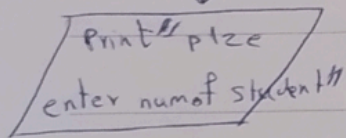 Print " plze
enter num of student "